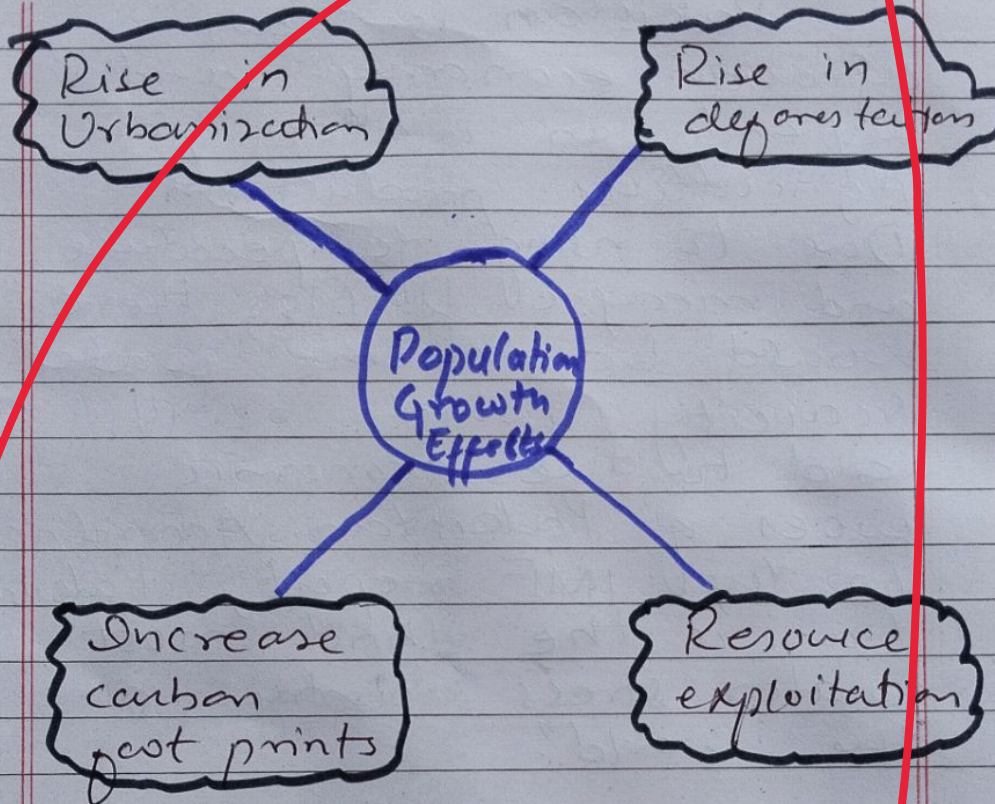 Rise in
Urbanization
Rise in
deforestation
Population
Growth
Effects
Increase
carbon
foot prints
Resource
exploitation